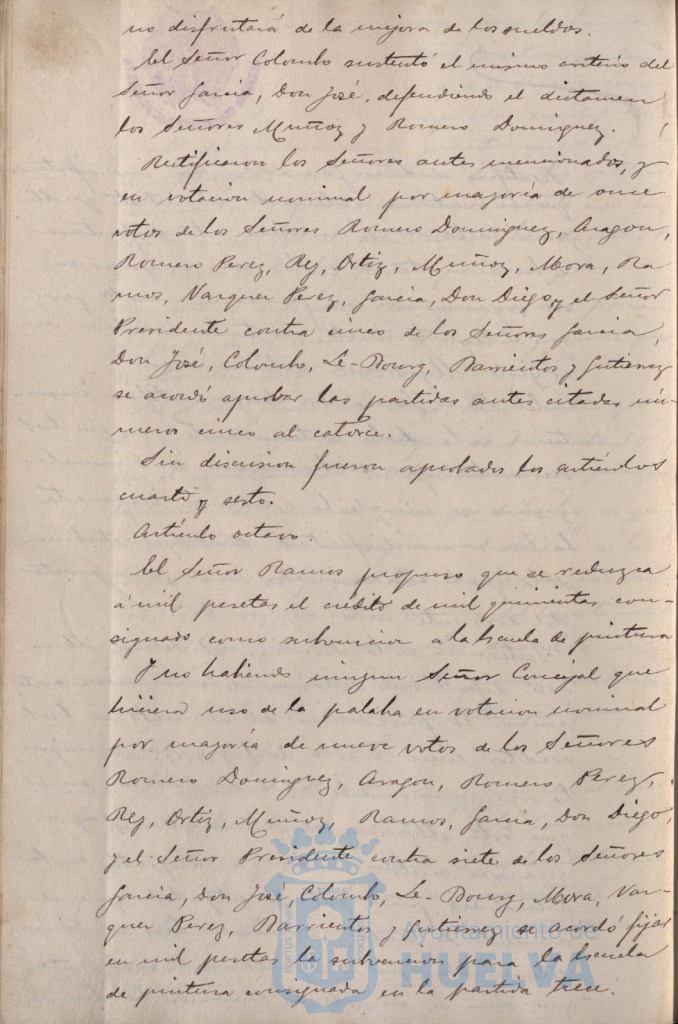 no disfrutará de la mejora de los sueldos.
El Señor Colombo sustentó el mismo criterio del
Señor Garcia, Don José, defendiendo el dictamen
los Señores Muñoz y Romero Dominguez.
Rectificaron los Señores antes mencionados, y
en votacion nominal por mayoría de once
votos de los Señores Romero Dominguez, Aragon,
Romero Perez, Rey, Ortiz, Muñoz, Mora, Ra-
mos, Vazquez Perez, Garcia, Don Diego, y el Señor
Presidente contra cinco de los Señores Garcia,
Don José, Colombo, Le-Bourg, Barrientos y Gutierrez
se acordó aprobar las partidas antes citadas nú-
meros cinco al catorce.
Sin discusion fueron aprobados los artículos
cuarto y sesto.
Artículo octavo.
El Señor Ramos propuso que se reduzca
á mil pesetas el crédito de mil quinientas con-
signado como subvencion a la Escuela de pintura
Y no habiendo ningun Señor Concejal que
hiciera uso de la palabra en votacion nominal
por mayoría de nueve votos de los Señores
Romero Dominguez, Aragon, Romero Perez,
Rey, Ortiz, Muñoz, Ramos, Garcia, Don Diego,
y el Señor Presidente contra siete de los Señores
Garcia, Don José, Colombo, Le-Bourg, Mora, Vaz-
quez Perez, Barrientos y Gutierrez se acordó fijar
en mil pesetas la subvencion para la Escuela
de pintura consignada en la partida trece.
Ayuntamiento de
HUELVA